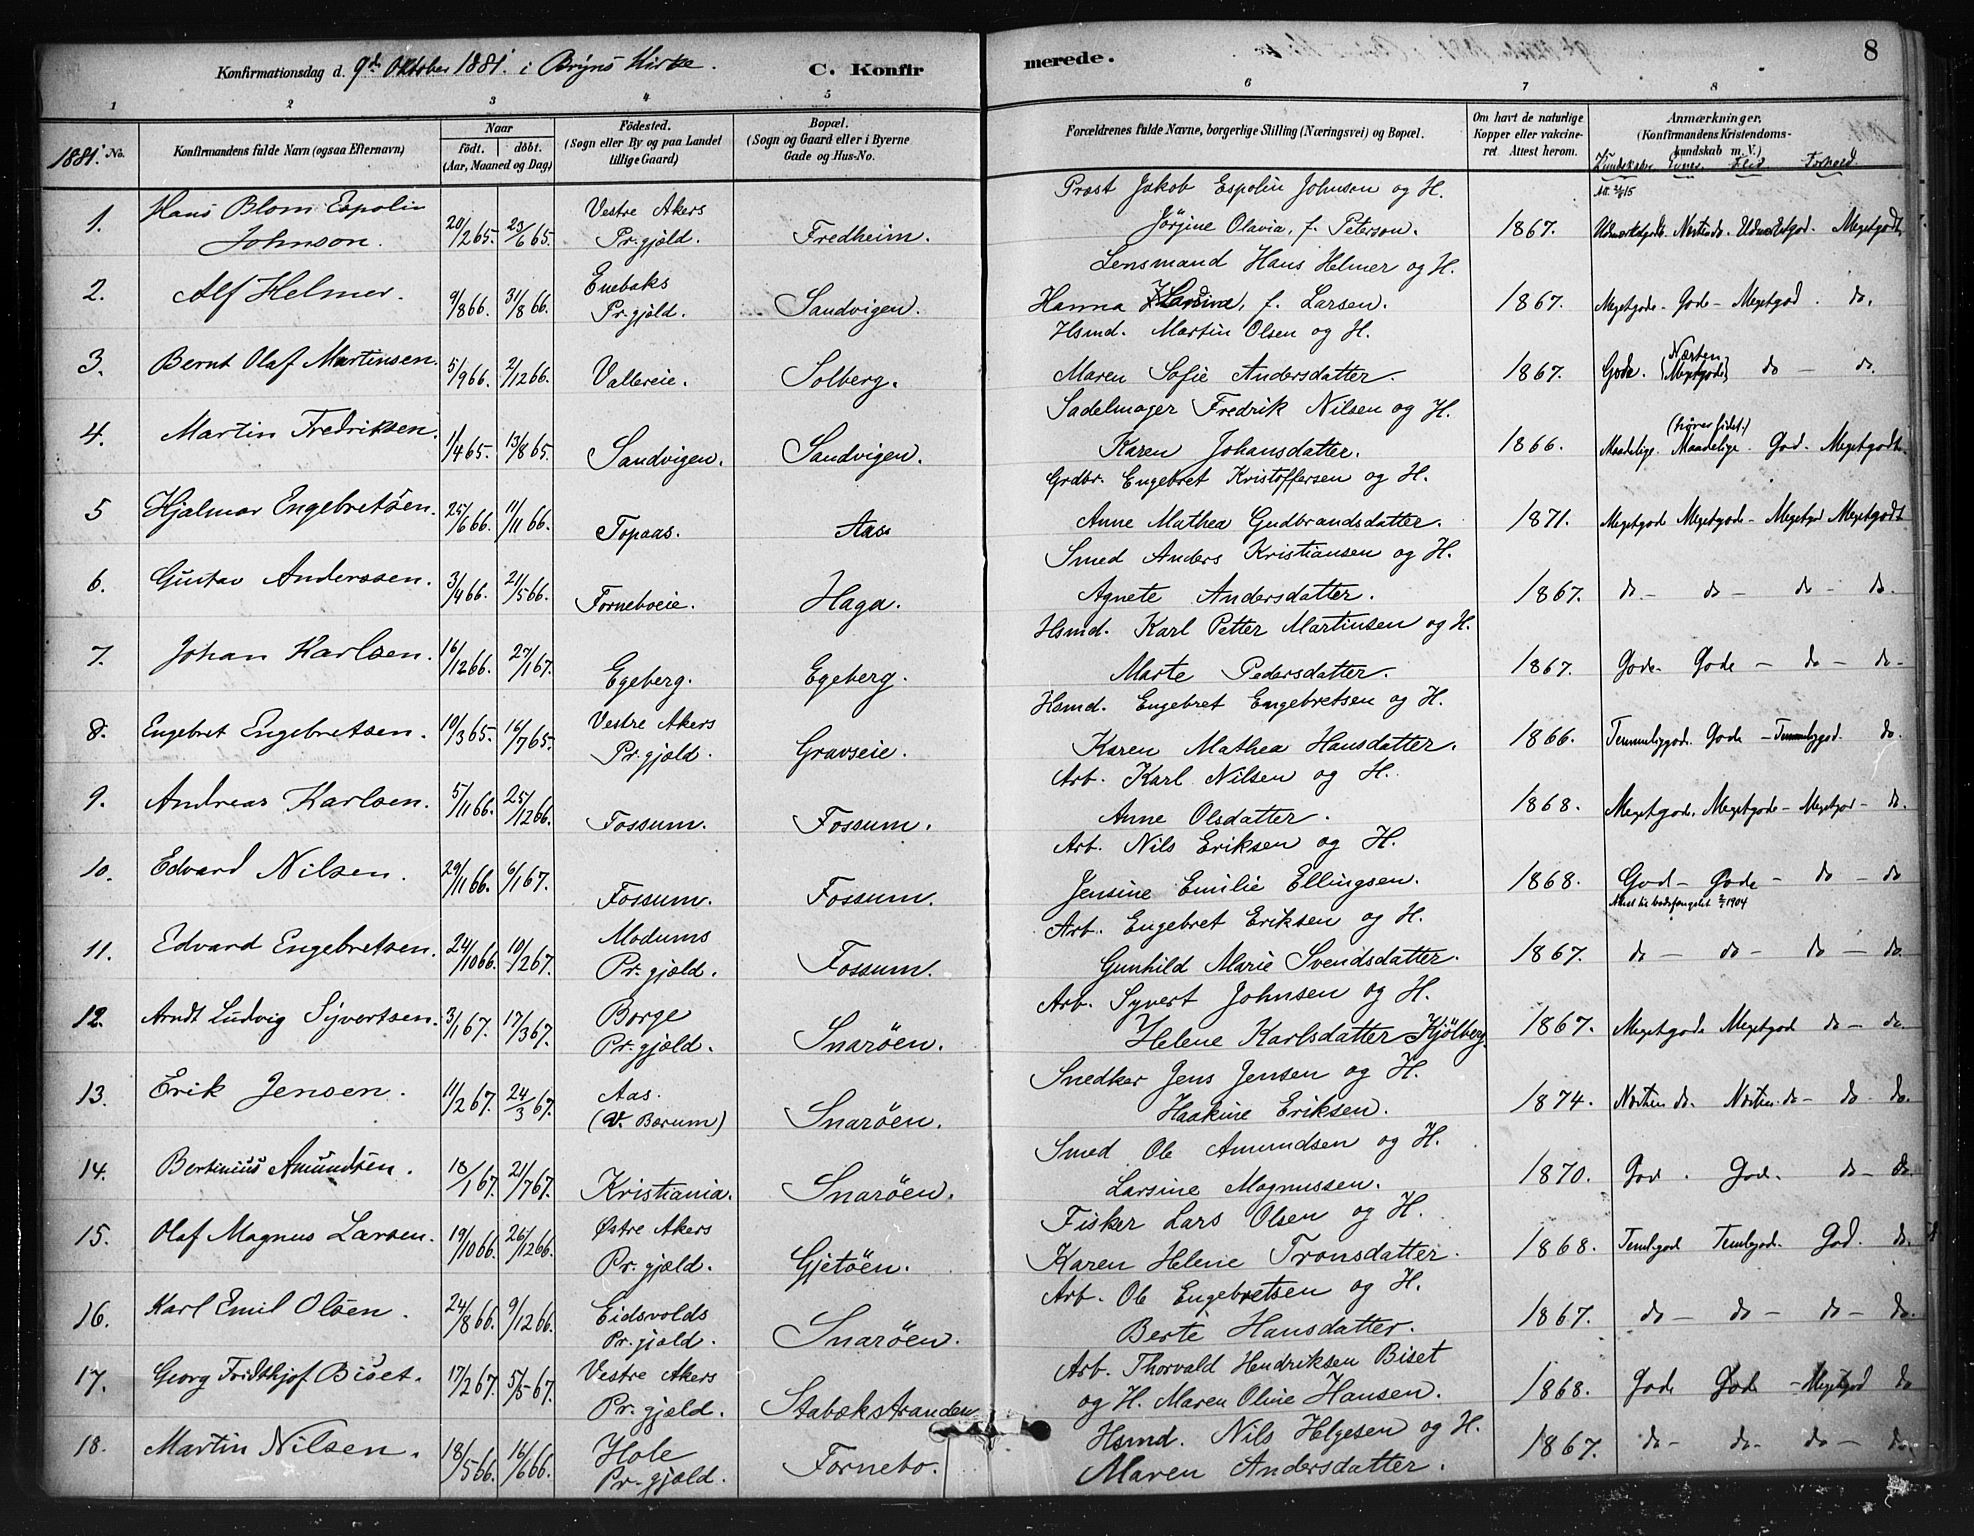 Konfirmationsdag d. 9de Oktober 1881. i Bryns Kirke.
C. Konfirmerede.
8
1 2 3 4 5 6 7 8
1881. No.
Konfirmandens fulde Navn (ogsaa Efternavn)
Naar
födt. döbt.
(Aar, Maaned og Dag)
Födested.
(Sogn eller By og paa Landet
tillige Gaard)
Bopæl.
(Sogn og Gaard eller i Byerne
Gade og Hus-No.
Forældrenes fulde Navne, borgerlige Stilling (Næringsvei) og Bopæl.
Om havt de naturlige
Kopper eller vakcine-
ret. Attest herom.
Anmærkninger.
(Konfirmandens Kristendoms-
kundskab m. V.)
Kundskaber Evner Flid Forhold
1. Hans Blom Espolin
Johnson. 20/2 65. 23/6 65. Vestre Akers
Pr.gjæld. Fredheim. Præst Jakob Espolin Johnson og H.
Jörgine Olavia, f. Peterson. 1867. Udmærketgode. Næsten do. Udmærketgod. Megetgodt
2. Alf Helmer. 9/8 66. 31/8 66. Enebaks
Pr.gjæld. Sandvigen. Lensmand Hans Helmer og H.
Hanna, f. Larsen. 1867. Megetgode - Gode - Megetgod. do.
3. Bernt Olaf Martinsen. 5/9 66. 2/12 66. Vallereie. Solberg. Hsmd. Martin Olsen og H.
Maren Sofie Andersdatter. 1867. Gode. (Næsten
Megetgode) do - do.
4. Martin Fredriksen. 1/4 65. 13/8 65. Sandvigen. Sandvigen. Sadelmager Fredrik Nilsen og H.
Karen Johansdatter. 1866. Maadelige. (hörer lidet.)
Maadelige. God. Megetgodt.
5 Hjalmar Engebretsen. 25/6 66. 11/11 66. Topaas. Aas. Grdbr. Engebret Kristoffersen og H.
Anne Mathea Gudbrandsdatter. 1871. Megetgode Megetgode - Megetgod Megetgodt
6. Gustav Anderssen. 3/4 66. 21/5 66. Forneboeie. Haga. Smed Anders Kristiansen og H.
Agnete Andersdatter. 1867. do - do - do - do.
7. Johan Karlsen. 16/12 66. 27/1 67. Egeberg. Egeberg. Hsmd. Karl Petter Martinsen og H.
Marte Pedersdatter. 1867. Gode - Gode - do - do -
8. Engebret Engebretsen. 10/3 65. 16/7 65. Vestre Akers
Pr.gjæld. Gravseie. Hsmd. Engebret Engebretsen og H.
Karen Mathea Hansdatter. 1866. Temmeliggode. Gode - Temmeliggod. do.
9. Andreas Karlsen. 5/11 66. 25/12 66. Fossum. Fossum. Arb. Karl Nilsen og H.
Anne Olsdatter. 1868. Megetgode. Megetgode - Megetgod - do.
10. Edvard Nilsen. 29/11 66. 6/1 67. Fossum. Fossum. Arb. Nils Eriksen og H.
Jensine Emilie Ellingsen. 1868. God - Gode - do - do
1904
11. Edvard Engebretsen. 24/10 66. 10/2 67. Modums
Pr.gjæld. Fossum. Arb. Engebret Eriksen og H.
Gunhild Marie Svendsdatter. 1867. do - do - do - do.
12. Arndt Ludvig Syvertsen. 3/1 67. 17/3 67. Borge
Pr.gjæld. Snaröen. Arb. Syvert Johnsen og H.
Helene Karlsdatter Kjölberg. 1867. Megetgode Megetgod do - do.
13. Erik Jensen. 11/2 67. 24/3 67. Aas.
(V. Bærum) Snaröen. Snedker Jens Jensen og H.
Haakine Eriksen. 1874. Næsten do. Næsten do - do - do.
14. Bertinius Amundsen. 18/1 67. 21/7 67. Kristiania. Snaröen. Smed Ole Amundsen og H.
Larsine Magnussen. 1870. God. God. do - do
15. Olaf Magnus Larsen. 19/10 66. 26/12 66. Østre Akers
Pr.gjæld. Gjetöen. Fisker Lars Olsen og H.
Karen Helene Tronsdatter. 1868. Teml.gode Teml.gode. God. do.
16. Karl Emil Olsen. 24/8 66. 9/12 66. Eidsvolds
Pr.gjæld. Snaröen. Arb. Ole Engebretsen og H.
Berte Hansdatter. 1867. do - do - do - do.
17. Georg Fridthjof Biset. 17/2 67. 5/5 67. Vestre Akers
Pr.gjæld. Stabækstranden Arb. Thorvald Hendriksen Biset
og H. Maren Oline Hansen. 1868. Gode Gode - Megetgod do
18. Martin Nilsen. 18/5 66. 16/6 66. Hole
Pr.gjæld. Fornebo. Hsmd. Nils Helgesen og H.
Maren Andersdatter. 1867. do - do - do - do.